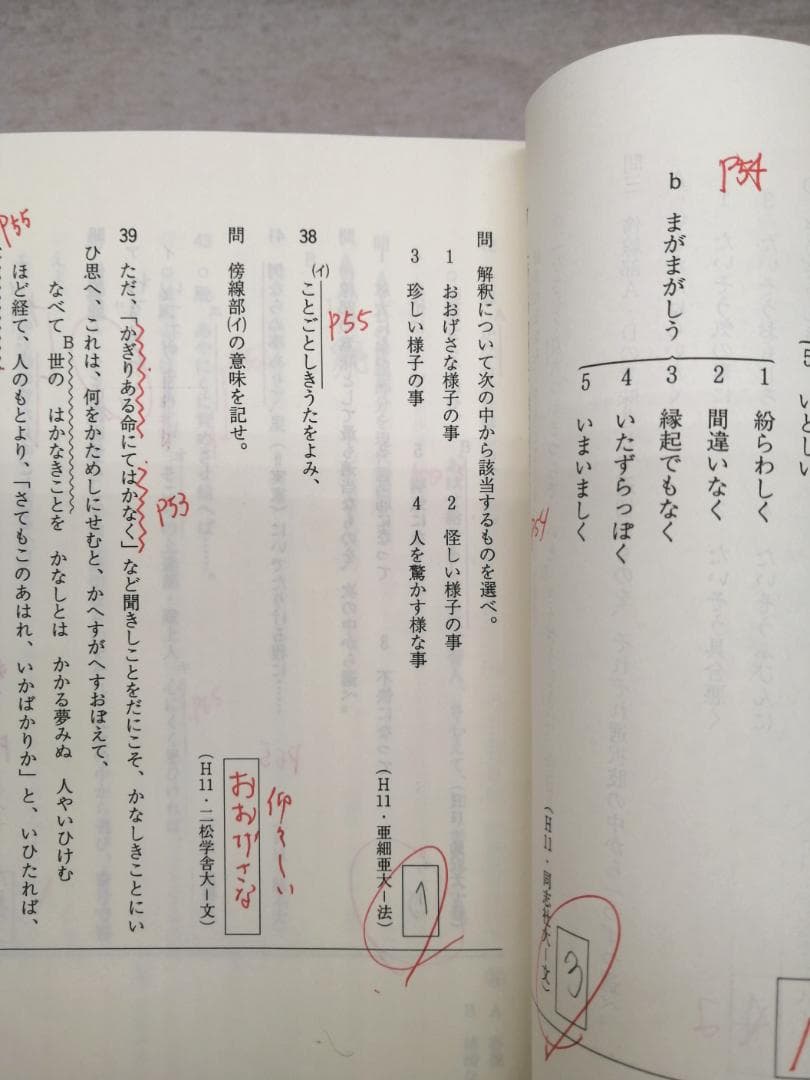 P54
b まがまがしう
1 紛らわしく
2 間違いなく
3 縁起でもなく
4 いたずらっぽく
5 いまいましく
P54
3
問 解釈について次の中から該当するものを選べ。
1 おおげさな様子の事
2 怪しい様子の事
3 珍しい様子の事
4 人を驚かす様な事
(H11・亜細亜大ー法)
1
38 (イ)ことごとしきうたをよみ、
P55
問 傍線部(イ)の意味を記せ。
仰々しい
おおげさな
(H11・二松学舎大ー文)
39 ただ、「かぎりある命にてはかなく」など聞きしことをだにこそ、かなしきことにい
P53
ひ思へ、これは、何をかためしにせむと、かへすがへすおぼえて、
なべて B世の はかなきことを かなしとは かかる夢みぬ 人やいひけむ
ほど経て、人のもとより、「さてもこのあはれ、いかばかりか」と、いひたれば、
P55